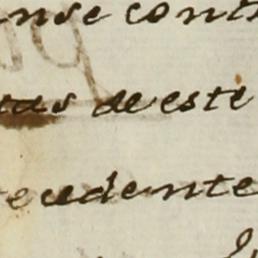 nse cont
tas de este
ecedente